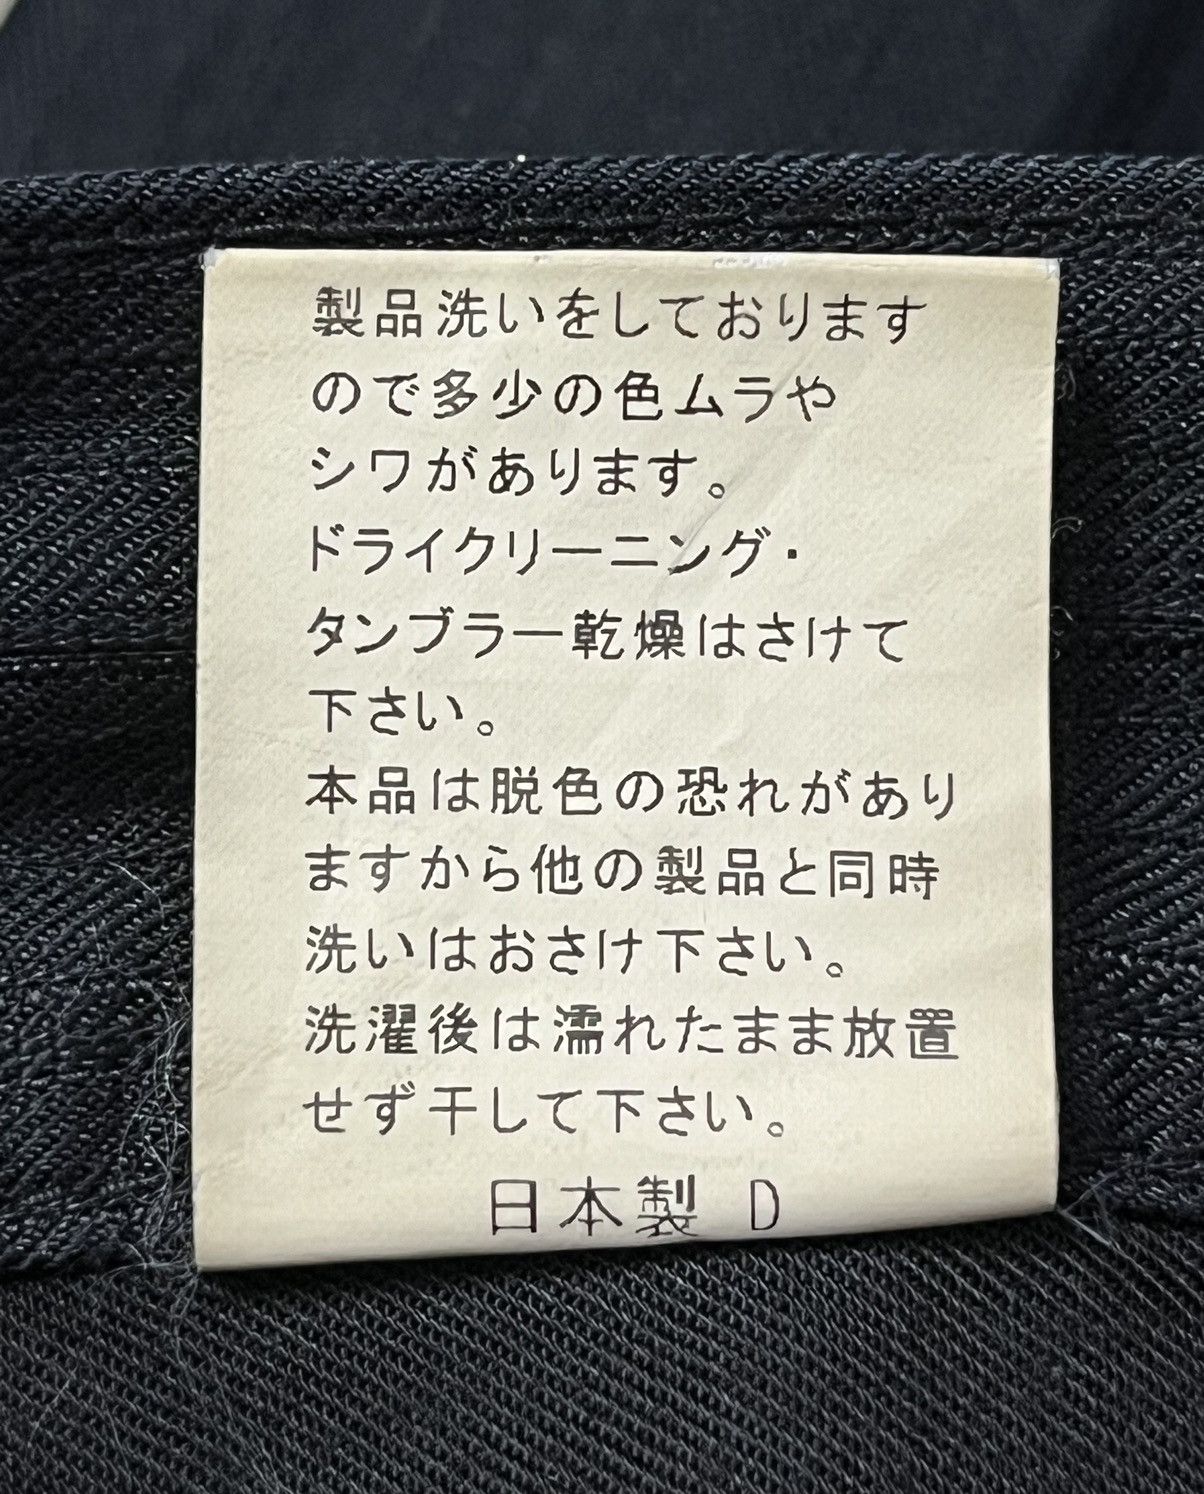 製品洗いをしております
ので多少の色ムラや
シワがあります。
ドライクリーニング・
タンブラー乾燥はさけて
下さい。
本品は脱色の恐れがあり
ますから他の製品と同時
洗いはおさけ下さい。
洗濯後は濡れたまま放置
せず干して下さい。
日本製 D